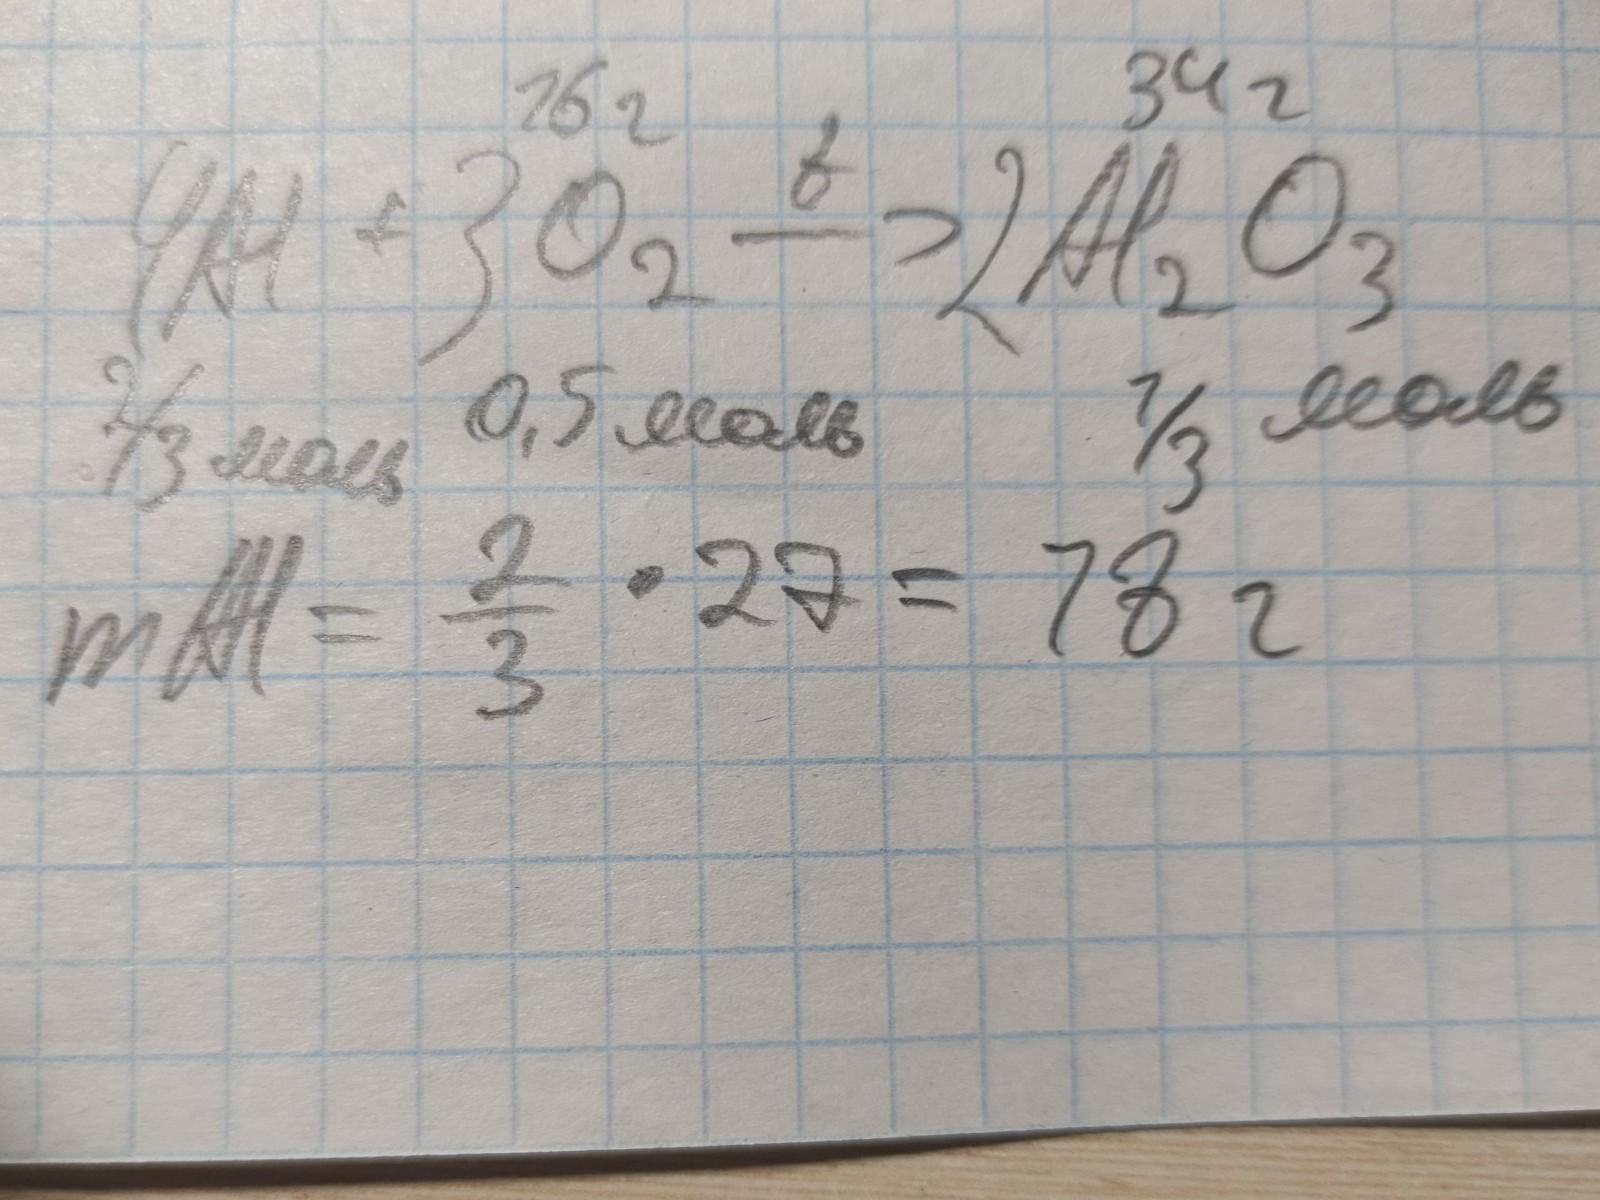 16 г 34 г
4Al + 3O₂ —t—> 2Al₂O₃
2/3 моль 0,5 моль 1/3 моль
mAl = 2/3 • 27 = 18 г